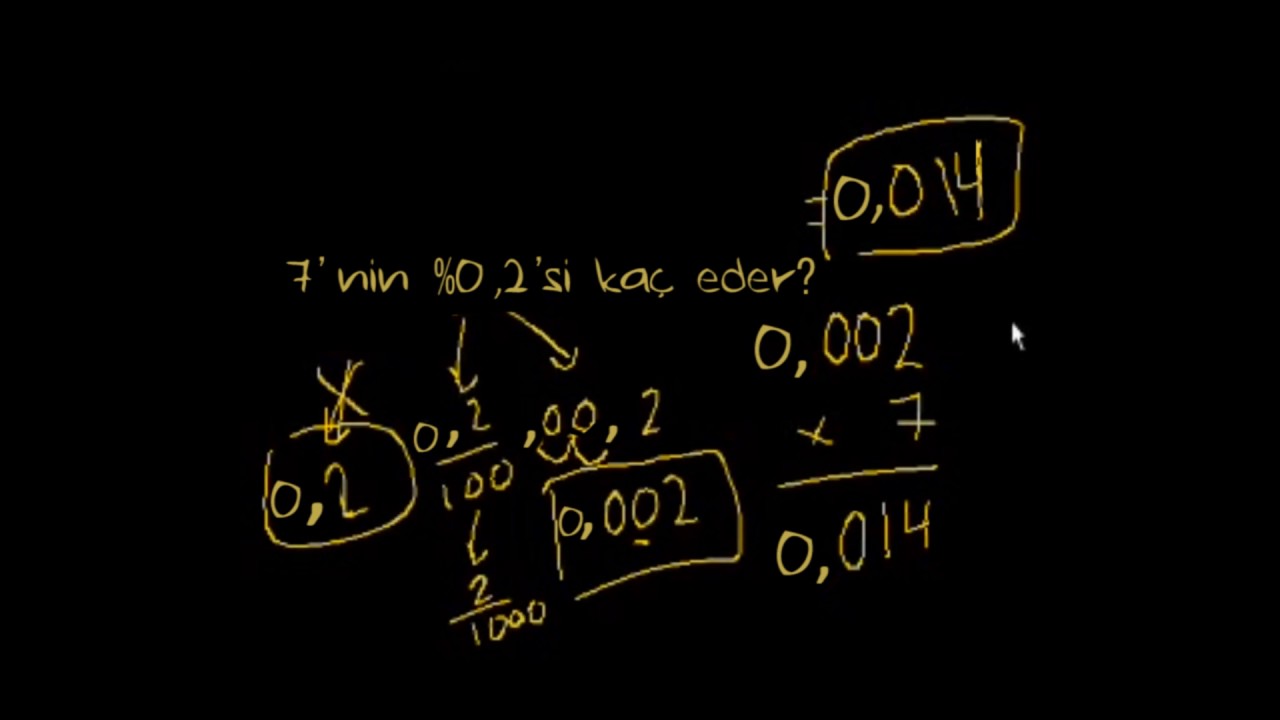 = 0,014
7'nin %0,2'si kaç eder?
0,002
x 7
0,014
0,2
0,2
100
2
1000
,00,2
0,002